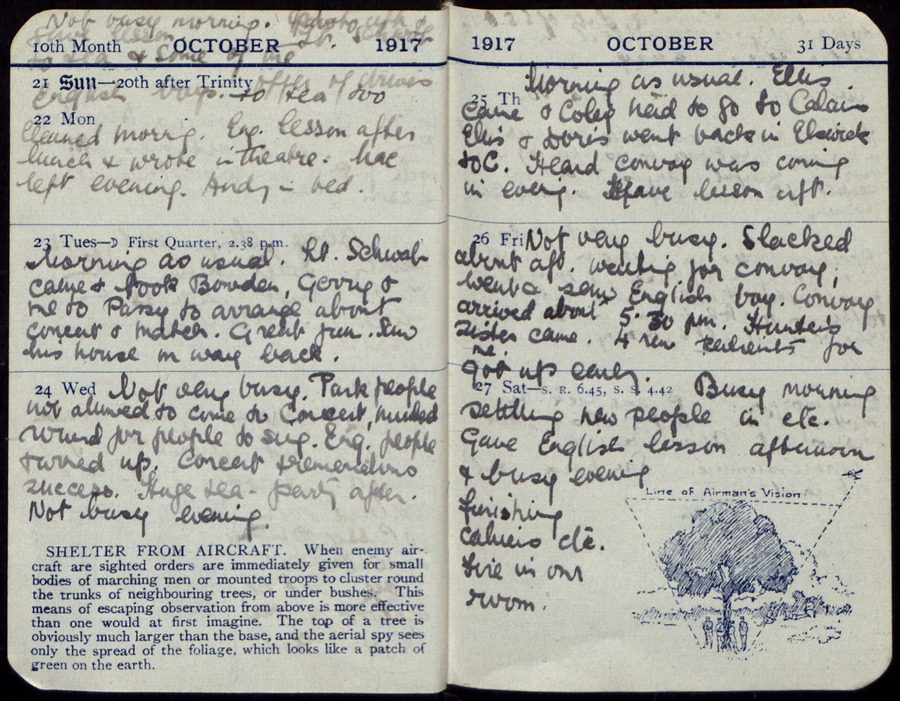 Not busy morning.
gave lesson
to tea & some of the
10th Month OCTOBER 1917
21 Sun—20th after Trinity
English boys. to tea too
22 Mon
Cleaned morning. Eng. lesson after
lunch & wrote in theatre. Mac
left evening. Andy in bed.
23 Tues—☽ First Quarter, 2.38 p.m.
Morning as usual. Lt. Schwab
came & took Bowden, Gerry &
me to Passy to arrange about
concert & match. Great fun. Saw
his house on way back.
24 Wed Not very busy. Park people
not allowed to come to Concert,
round for people to sing. Eng. people
turned up. Concert tremendous
success. Huge tea-party after.
Not busy evening.
SHELTER FROM AIRCRAFT. When enemy air-
craft are sighted orders are immediately given for small
bodies of marching men or mounted troops to cluster round
the trunks of neighbouring trees, or under bushes. This
means of escaping observation from above is more effective
than one would at first imagine. The top of a tree is
obviously much larger than the base, and the aerial spy sees
only the spread of the foliage, which looks like a patch of
green on the earth.
1917 OCTOBER 31 Days
Morning as usual. Ellis
25 Th
came & Coley had to go to Calais
Ellis & Doris went back in
to C. Heard convoy was coming
in evening. Gave lesson aft.
26 Fri Not very busy. Slacked
about aft. waiting for convoy,
went & saw English boy. Convoy
arrived about 5.30 pm. Hunter's
sister came. 4 new patients for
me.
Got up early.
27 Sat—S. R. 6.45, S. S. 4.42 Busy morning
settling new people in etc.
Gave English lesson afternoon
& busy evening
finishing
cahiers etc.
Fire in our
room.
Line of Airman's Vision